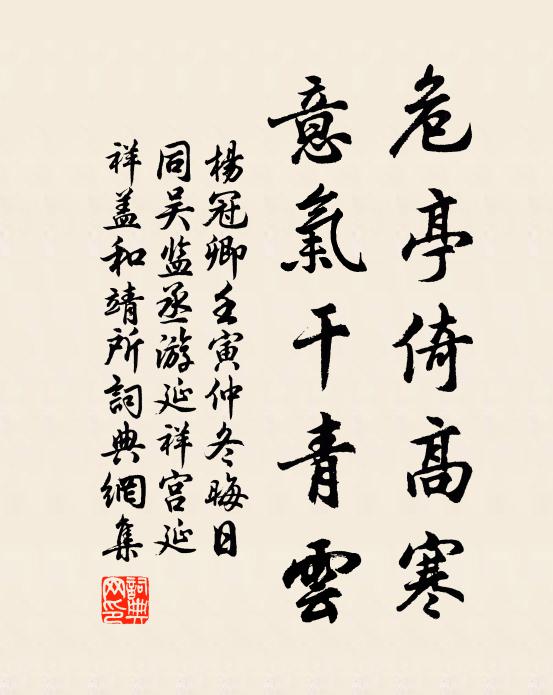 危亭倚高寒
意氣干青雲
楊冠卿壬寅仲冬晦日
同吴监丞游延祥宫延
祥盖和靖所詞典網集
詞典网印